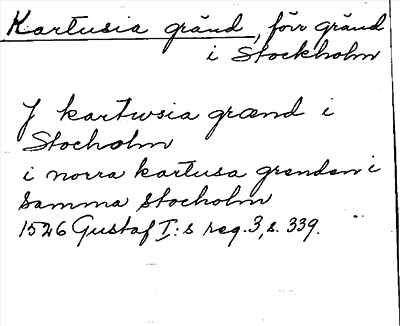 Kartusia gränd, förr gränd
i Stockholm
J kartwsia grænd i
Stocholm
i norra kartusa grenden i
samma stocholm
1526 Gustaf I:s reg. 3, s. 339.